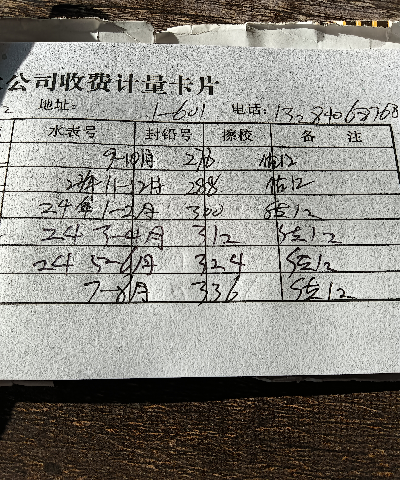 公司收费计量卡片
地址: 1-601 电话: 13284068768
水表号 封铅号 擦校 备注
9-10月 276 估12
23年11-12月 288 估12
24年1-2月 300 估12
24 3-4月 312 估12
24 5-6月 324 估12
7-8月 336 估12